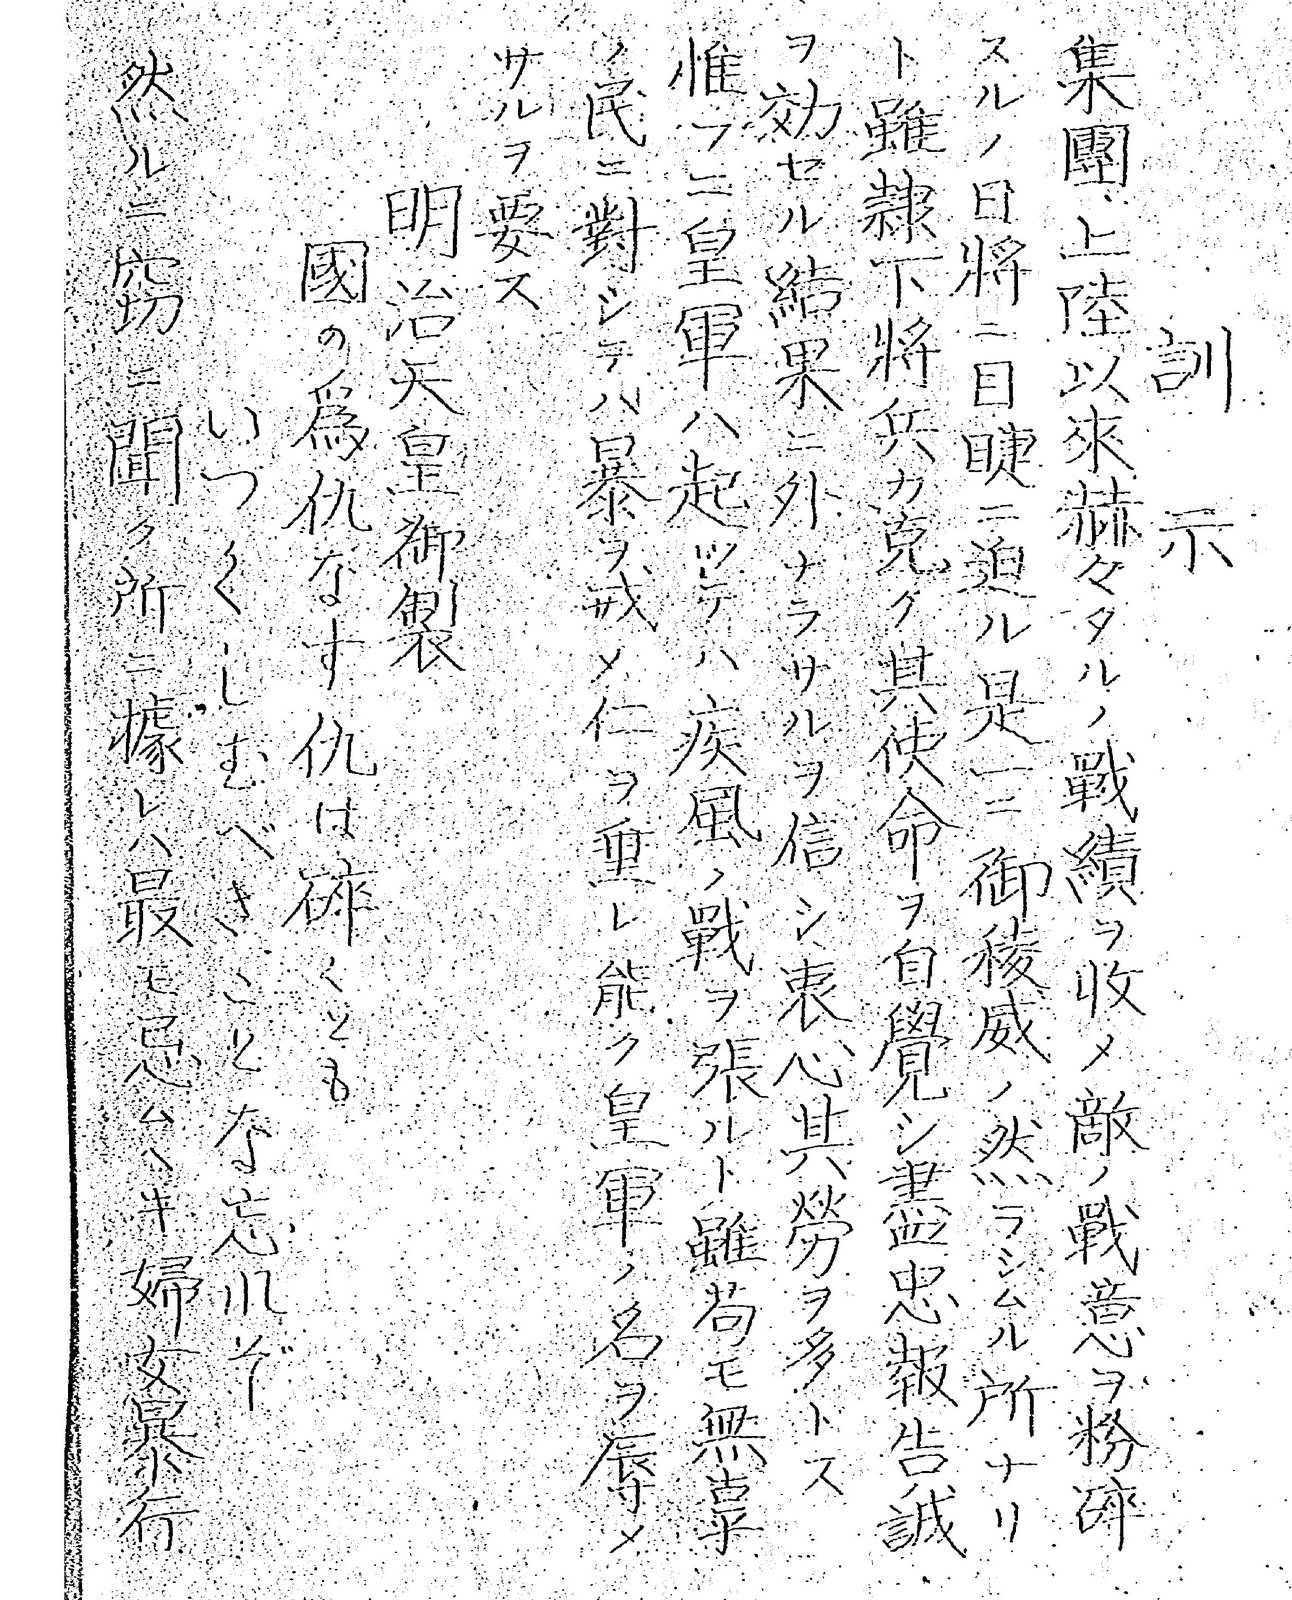 訓示
集團、上陸以來赫々タルノ戰績ヲ收メ敵ノ戰意ヲ粉碎
スルノ日將ニ目睫ニ迫ル是一ニ御稜威ノ然ラシムル所ナリ
ト雖隷下將兵カ克ク其使命ヲ自覺シ盡忠報告ノ誠
ヲ効セル結果ニ外ナラサルヲ信シ衷心其勞ヲ多トス
惟フニ皇軍ハ起ツテハ疾風ノ戰ヲ張ルト雖苟モ無辜
ノ民ニ對シテハ暴ヲ戒メ仁ヲ重レ能ク皇軍ノ名ヲ辱メ
サルヲ要ス
明治天皇御製
國の爲仇なす仇は碎くとも
いつくしむべきことな忘れそ
然ルニ窃ニ聞ク所ニ據レハ最モ忌ムヘキ婦女暴行